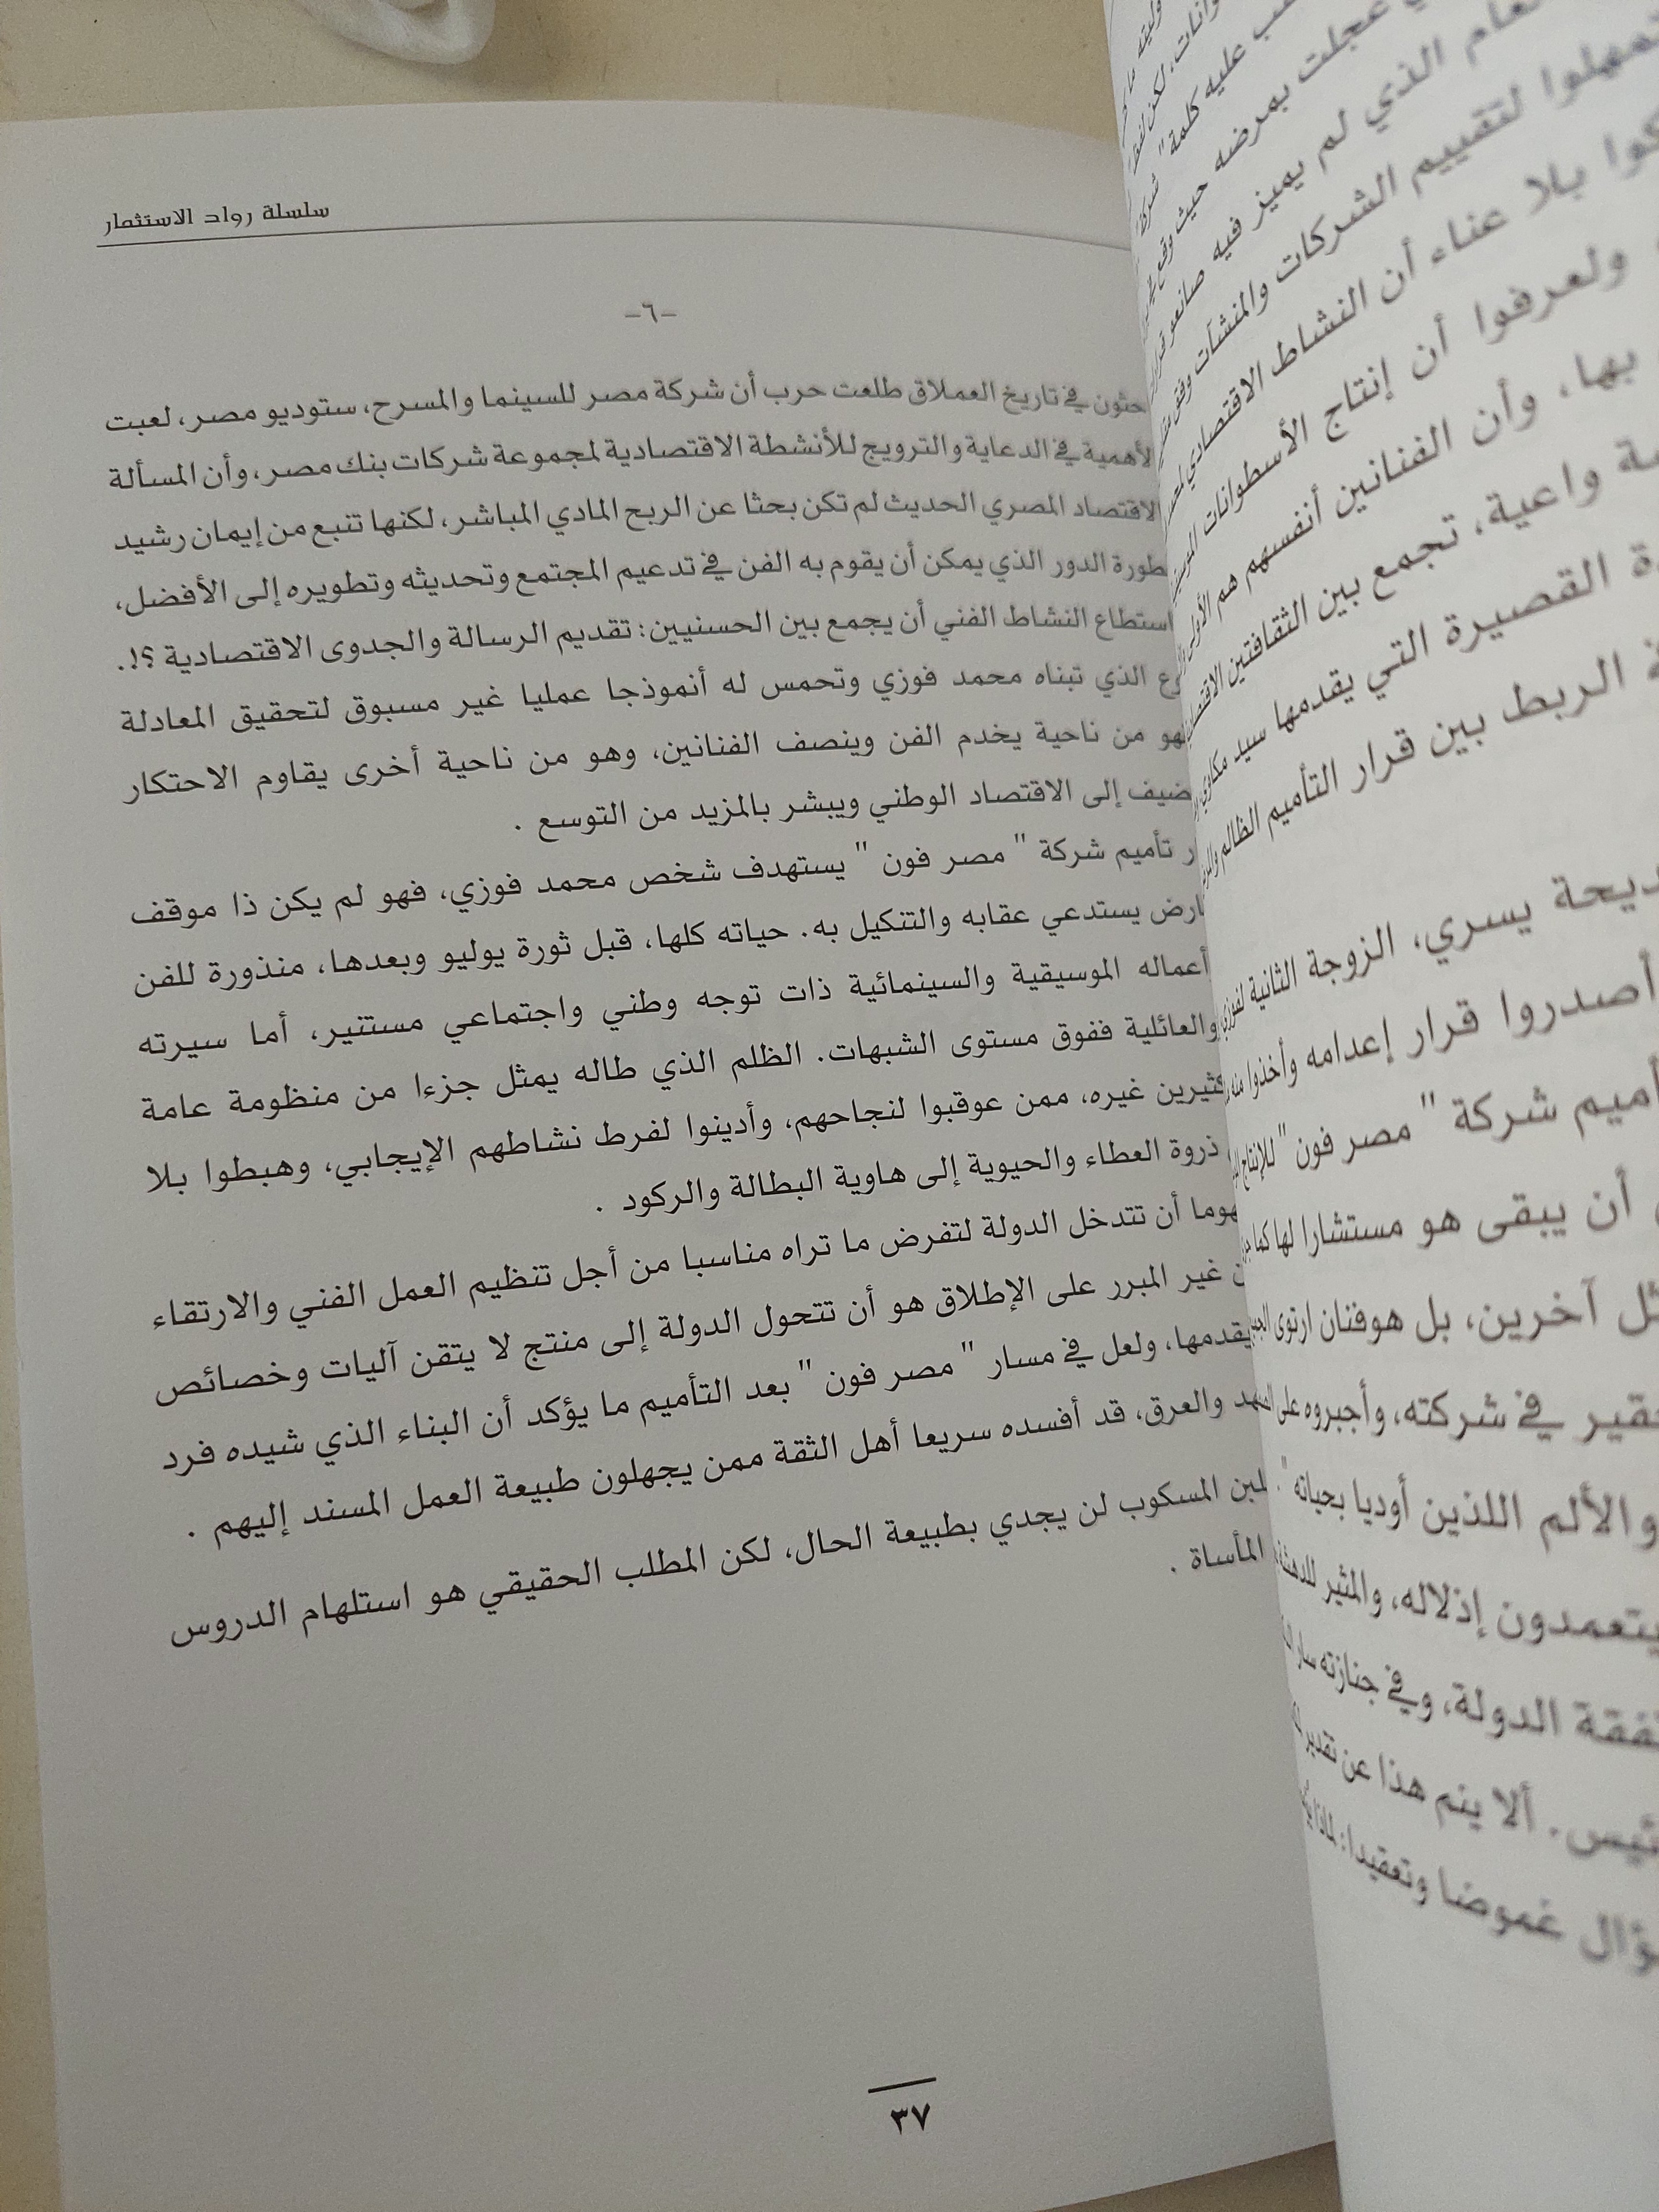 سلسلة رواد الاستثمار
-٦-
في تاريخ العملاق طلعت حرب أن شركة مصر للسينما والمسرح، ستوديو مصر، لعبت
في الدعاية والترويج للأنشطة الاقتصادية لمجموعة شركات بنك مصر، وأن المسألة
الاقتصاد المصري الحديث لم تكن بحثا عن الربح المادي المباشر، لكنها تنبع من إيمان رشيد
الدور الذي يمكن أن يقوم به الفن في تدعيم المجتمع وتحديثه وتطويره إلى الأفضل،
استطاع النشاط الفني أن يجمع بين الحسنيين: تقديم الرسالة والجدوى الاقتصادية ؟!.
الذي تبناه محمد فوزي وتحمس له أنموذجا عمليا غير مسبوق لتحقيق المعادلة
فهو من ناحية يخدم الفن وينصف الفنانين، وهو من ناحية أخرى يقاوم الاحتكار
إلى الاقتصاد الوطني ويبشر بالمزيد من التوسع .
تأميم شركة " مصر فون " يستهدف شخص محمد فوزي، فهو لم يكن ذا موقف
يستدعي عقابه والتنكيل به. حياته كلها، قبل ثورة يوليو وبعدها، منذورة للفن
أعماله الموسيقية والسينمائية ذات توجه وطني واجتماعي مستنير، أما سيرته
والعائلية ففوق مستوى الشبهات. الظلم الذي طاله يمثل جزءا من منظومة عامة
غيره، ممن عوقبوا لنجاحهم، وأدينوا لفرط نشاطهم الإيجابي، وهبطوا بلا
ذروة العطاء والحيوية إلى هاوية البطالة والركود .
أن تتدخل الدولة لتفرض ما تراه مناسبا من أجل تنظيم العمل الفني والارتقاء
غير المبرر على الإطلاق هو أن تتحول الدولة إلى منتج لا يتقن آليات وخصائص
يقدمها، ولعل في مسار " مصر فون " بعد التأميم ما يؤكد أن البناء الذي شيده فرد
والعرق، قد أفسده سريعا أهل الثقة ممن يجهلون طبيعة العمل المسند إليهم .
المسكوب لن يجدي بطبيعة الحال، لكن المطلب الحقيقي هو استلهام الدروس
المأساة .
٣٧
عجلت بمرضه حيث وقع
الذي لم يميز فيه صانعو
لتقييم الشركات والمنشآت وفق
بلا عناء أن النشاط الاقتصادي
ولعرفوا أن إنتاج الأسطوانات
بها، وأن الفنانين أنفسهم هم الأولى
واعية، تجمع بين الثقافتين
القصيرة التي يقدمها سيد مكاوي
الربط بين قرار التأميم الظالم
يسري، الزوجة الثانية لفوزي
أصدروا قرار إعدامه وأخذوا منه
شركة " مصر فون" للإنتاج
أن يبقى هو مستشارا لها كما
آخرين، بل هوفنان ارتوى
في شركته، وأجبروه على
والألم اللذين أوديا بحياته ".
يتعمدون إذلاله، والمثير للدهشة
الدولة، وفي جنازته سار
ألا ينم هذا عن تقدير
غموضا وتعقيدا: لماذا